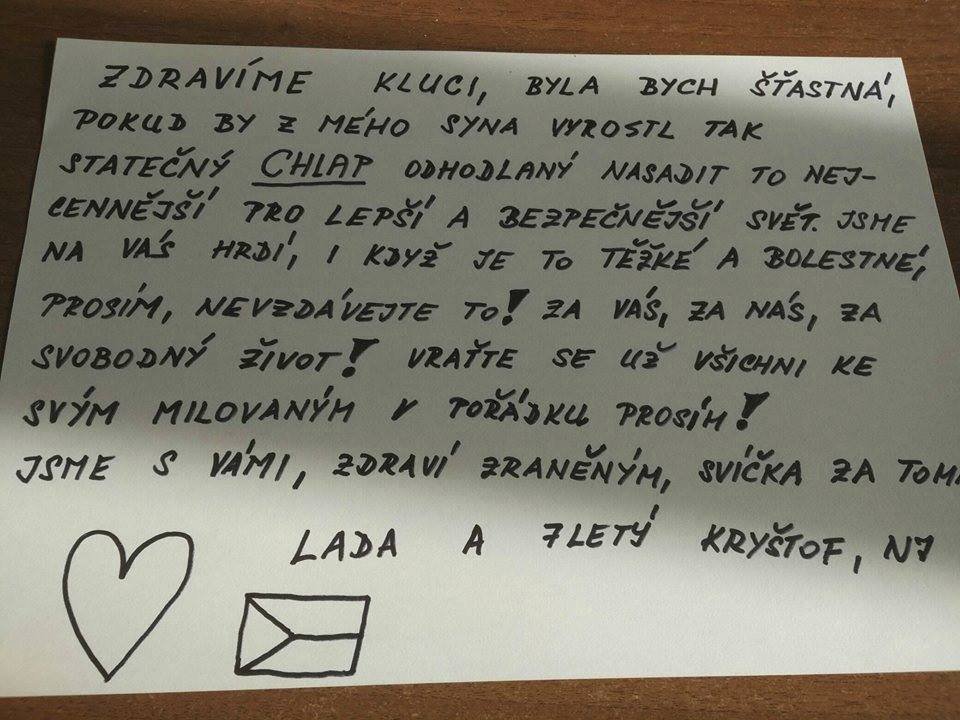 ZDRAVÍME KLUCI, BYLA BYCH ŠŤASTNÁ,
POKUD BY Z MÉHO SYNA VYROSTL TAK
STATEČNÝ CHLAP ODHODLANÝ NASADIT TO NEJ-
CENNĚJŠÍ PRO LEPŠÍ A BEZPEČNĚJŠÍ SVĚT. JSME
NA VÁS HRDÍ, I KDYŽ JE TO TĚŽKÉ A BOLESTNÉ,
PROSÍM, NEVZDÁVEJTE TO! ZA VÁS, ZA NÁS, ZA
SVOBODNÝ ŽIVOT! VRAŤTE SE UŽ VŠICHNI KE
SVÝM MILOVANÝM V POŘÁDKU PROSÍM!
JSME S VÁMI, ZDRAVÍ ZRANĚNÝM, SVÍČKA ZA
LADA A 7LETÝ KRYŠTOF, NJ